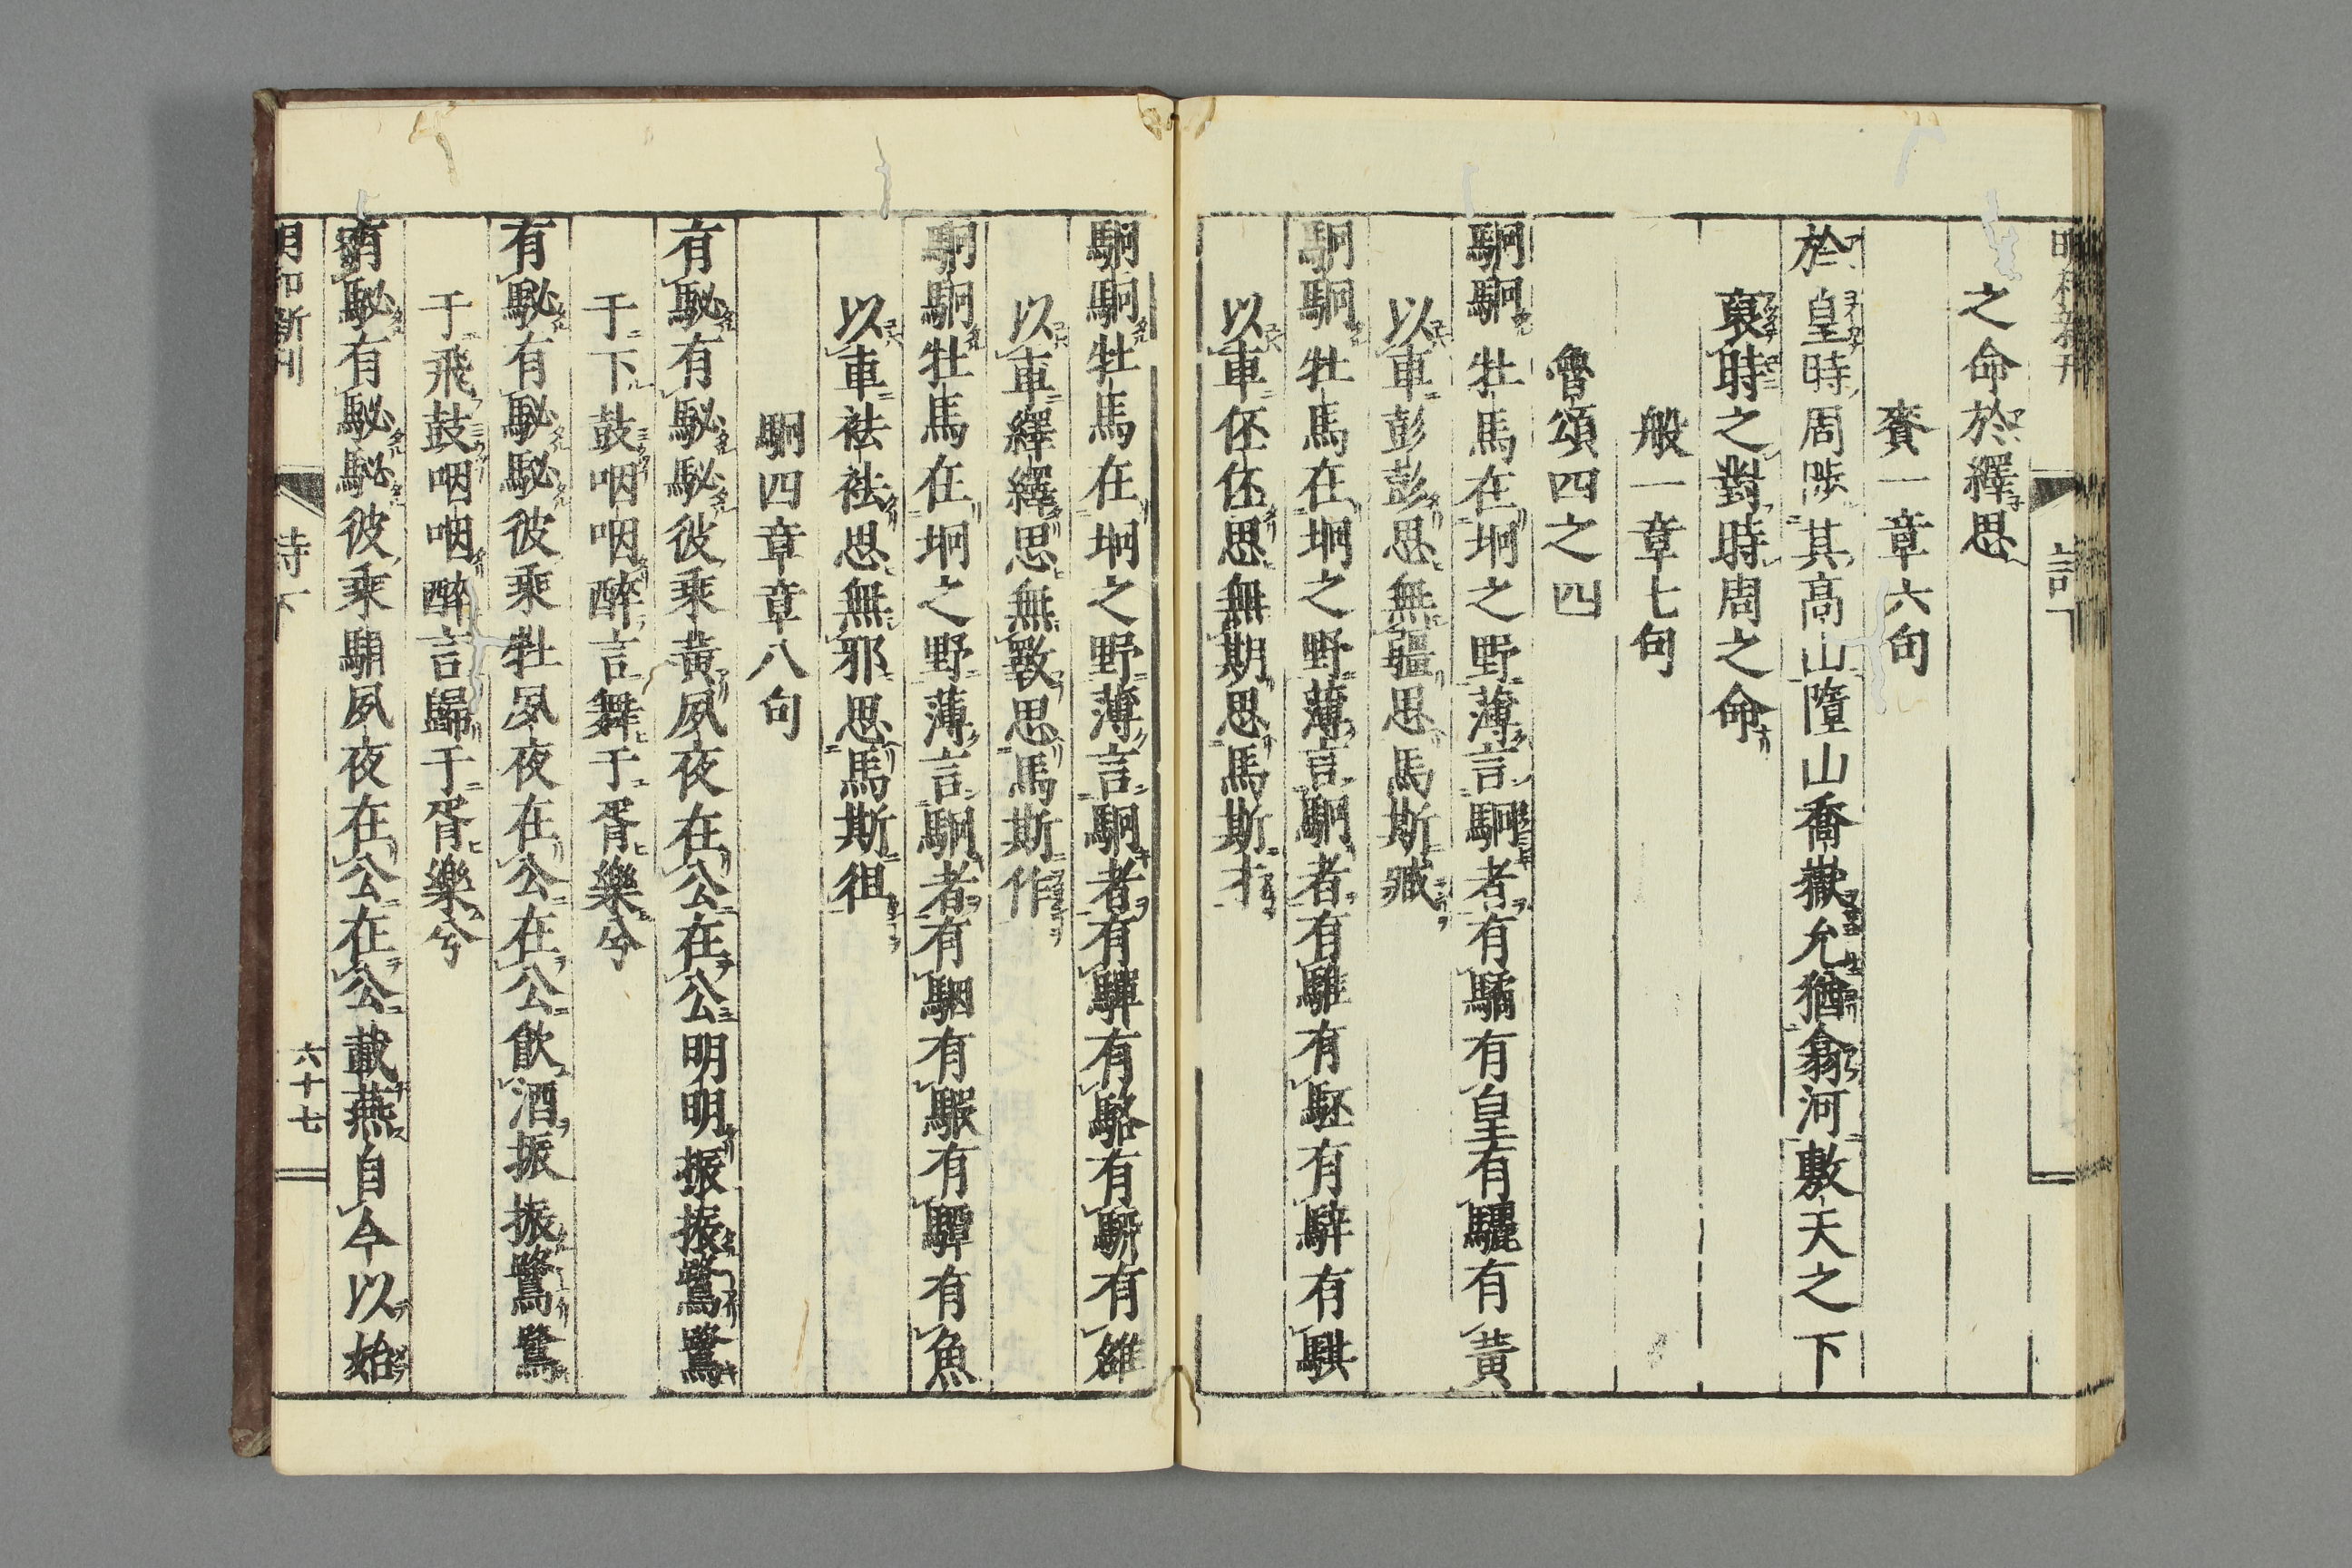 之命於繹思
賚一章六句
於皇時周陟其高山隨山喬嶽允猶翕河敷天之下
裒時之對時周之命
般一章七句
魯頌四之四
駉駉牡馬在坰之野薄言駉者有驈有皇有驪有黃
以車彭彭思無疆思馬斯臧
駉駉牡馬在坰之野薄言駉者有騅有駓有騂有騏
以車伾伾思無期思馬斯才
駉駉牡馬在坰之野薄言駉者有驒有駱有騮有雒
以車繹繹思無斁思馬斯作
駉駉牡馬在坰之野薄言駉者有駰有騢有驔有魚
以車祛祛思無邪思馬斯徂
駉四章章八句
有駜有駜駜彼乘黃夙夜在公在公明明振振鷺鷺
于下鼓咽咽醉言舞于胥樂兮
有駜有駜駜彼乘牡夙夜在公在公飲酒振振鷺鷺
于飛鼓咽咽醉言歸于胥樂兮
有駜有駜駜彼乘駽夙夜在公在公載燕自今以始
明和新刊 詩下 六十七